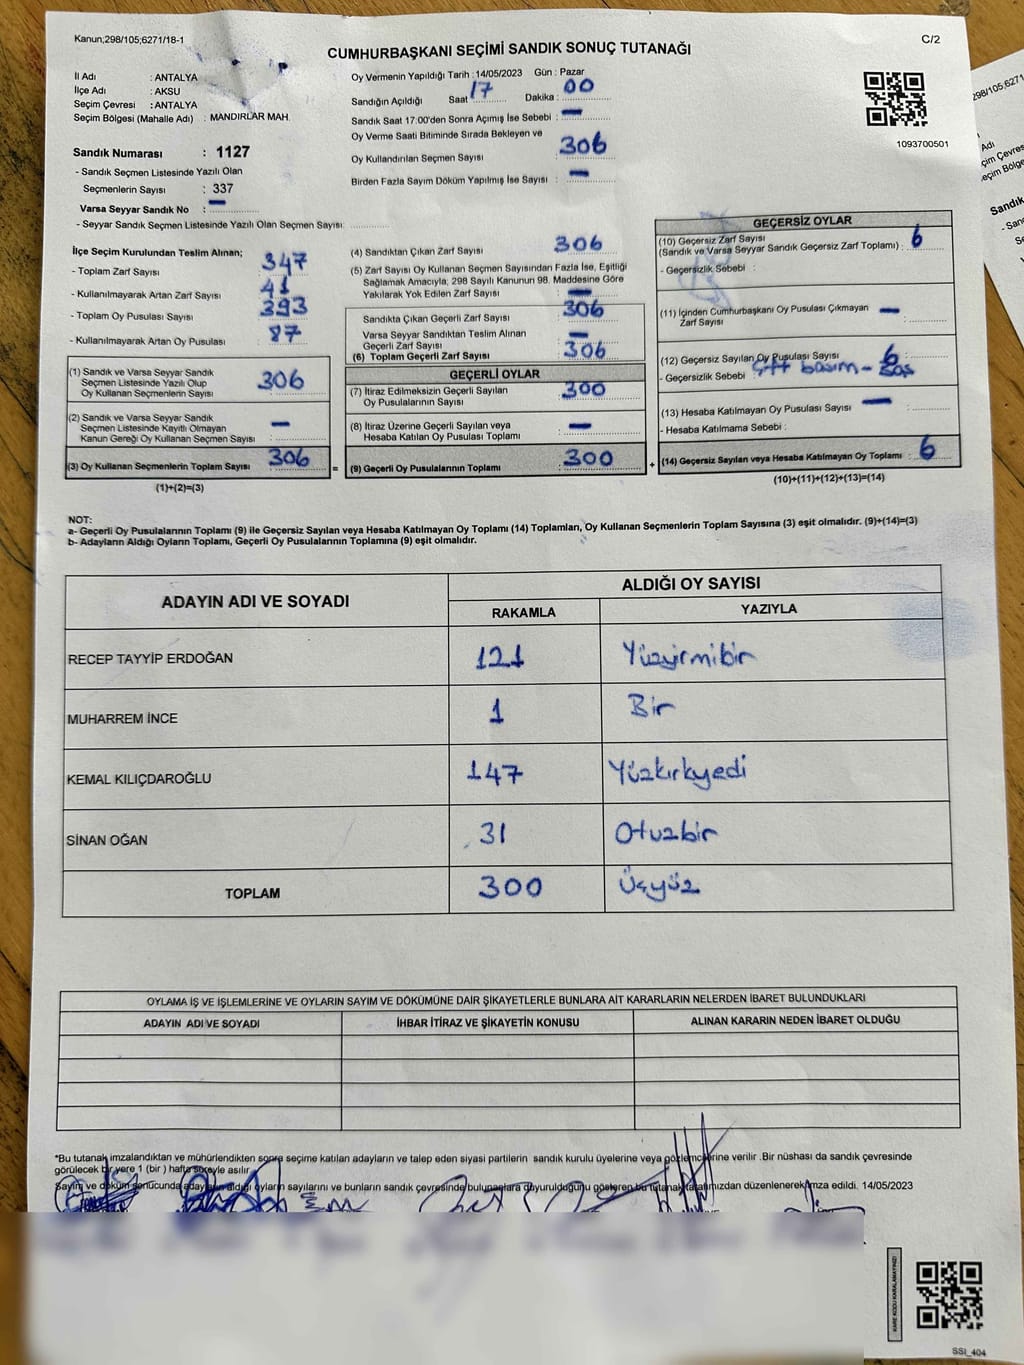 Kanun;298/105;6271/18-1
C/2
CUMHURBAŞKANI SEÇİMİ SANDIK SONUÇ TUTANAĞI
İl Adı : ANTALYA
İlçe Adı : AKSU
Seçim Çevresi : ANTALYA
Seçim Bölgesi (Mahalle Adı) : MANDIRLAR MAH.
Sandık Numarası : 1127
- Sandık Seçmen Listesinde Yazılı Olan
Seçmenlerin Sayısı : 337
Varsa Seyyar Sandık No : –
- Seyyar Sandık Seçmen Listesinde Yazılı Olan Seçmen Sayısı:
Oy Vermenin Yapıldığı Tarih : 14/05/2023 Gün : Pazar
Sandığın Açıldığı Saat : 17 Dakika : 00
Sandık Saat 17:00'den Sonra Açımış İse Sebebi : –
Oy Verme Saati Bitiminde Sırada Bekleyen ve
Oy Kullandırılan Seçmen Sayısı : 306
Birden Fazla Sayım Döküm Yapılmış İse Sayısı : –
1093700501
İlçe Seçim Kurulundan Teslim Alınan;
- Toplam Zarf Sayısı : 347
- Kullanılmayarak Artan Zarf Sayısı : 41
- Toplam Oy Pusulası Sayısı : 393
- Kullanılmayarak Artan Oy Pusulası : 87
(1) Sandık ve Varsa Seyyar Sandık
Seçmen Listesinde Yazılı Olup
Oy Kullanan Seçmenlerin Sayısı : 306
(2) Sandık ve Varsa Seyyar Sandık
Seçmen Listesinde Kayıtlı Olmayan
Kanun Gereği Oy Kullanan Seçmen Sayısı : –
(3) Oy Kullanan Seçmenlerin Toplam Sayısı : 306
(1)+(2)=(3)
(4) Sandıktan Çıkan Zarf Sayısı : 306
(5) Zarf Sayısı Oy Kullanan Seçmen Sayısından Fazla İse, Eşitliği
Sağlamak Amacıyla; 298 Sayılı Kanunun 98. Maddesine Göre
Yakılarak Yok Edilen Zarf Sayısı : –
Sandıkta Çıkan Geçerli Zarf Sayısı : 306
Varsa Seyyar Sandıktan Teslim Alınan
Geçerli Zarf Sayısı : –
(6) Toplam Geçerli Zarf Sayısı : 306
GEÇERLİ OYLAR
(7) İtiraz Edilmeksizin Geçerli Sayılan
Oy Pusulalarının Sayısı : 300
(8) İtiraz Üzerine Geçerli Sayılan veya
Hesaba Katılan Oy Pusulası Toplamı : –
= (9) Geçerli Oy Pusulalarının Toplamı : 300
GEÇERSİZ OYLAR
(10) Geçersiz Zarf Sayısı
(Sandık ve Varsa Seyyar Sandık Geçersiz Zarf Toplamı) : 6
- Geçersizlik Sebebi :
(11) İçinden Cumhurbaşkanı Oy Pusulası Çıkmayan
Zarf Sayısı : –
(12) Geçersiz Sayılan Oy Pusulası Sayısı : 6
- Geçersizlik Sebebi : Çift basım - Boş
(13) Hesaba Katılmayan Oy Pusulası Sayısı : –
- Hesaba Katılmama Sebebi :
+ (14) Geçersiz Sayılan veya Hesaba Katılmayan Oy Toplamı : 6
(10)+(11)+(12)+(13)=(14)
NOT:
a- Geçerli Oy Pusulalarının Toplamı (9) ile Geçersiz Sayılan veya Hesaba Katılmayan Oy Toplamı (14) Toplamları, Oy Kullanan Seçmenlerin Toplam Sayısına (3) eşit olmalıdır. (9)+(14)=(3)
b- Adayların Aldığı Oyların Toplamı, Geçerli Oy Pusulalarının Toplamına (9) eşit olmalıdır.
ADAYIN ADI VE SOYADI
ALDIĞI OY SAYISI
RAKAMLA YAZIYLA
RECEP TAYYİP ERDOĞAN 121 Yüzyirmibir
MUHARREM İNCE 1 Bir
KEMAL KILIÇDAROĞLU 147 Yüzkırkyedi
SİNAN OĞAN 31 Otuzbir
TOPLAM 300 Üçyüz
OYLAMA İŞ VE İŞLEMLERİNE VE OYLARIN SAYIM VE DÖKÜMÜNE DAİR ŞİKAYETLERLE BUNLARA AİT KARARLARIN NELERDEN İBARET BULUNDUKLARI
ADAYIN ADI VE SOYADI İHBAR İTİRAZ VE ŞİKAYETİN KONUSU ALINAN KARARIN NEDEN İBARET OLDUĞU
*Bu tutanak imzalandıktan ve mühürlendikten sonra seçime katılan adayların ve talep eden siyasi partilerin sandık kurulu üyelerine veya gözlemcilerine verilir .Bir nüshası da sandık çevresinde
görülecek bir yere 1 (bir ) hafta süreyle asılır.
Sayım ve döküm sonucunda adayların aldığı oyların sayılarını ve bunların sandık çevresinde bulunanlara duyurulduğunu gösteren bu tutanak tarafımızdan düzenlenerek imza edildi. 14/05/2023
KARE KODU KARALAMAYINIZ!
SSI_404